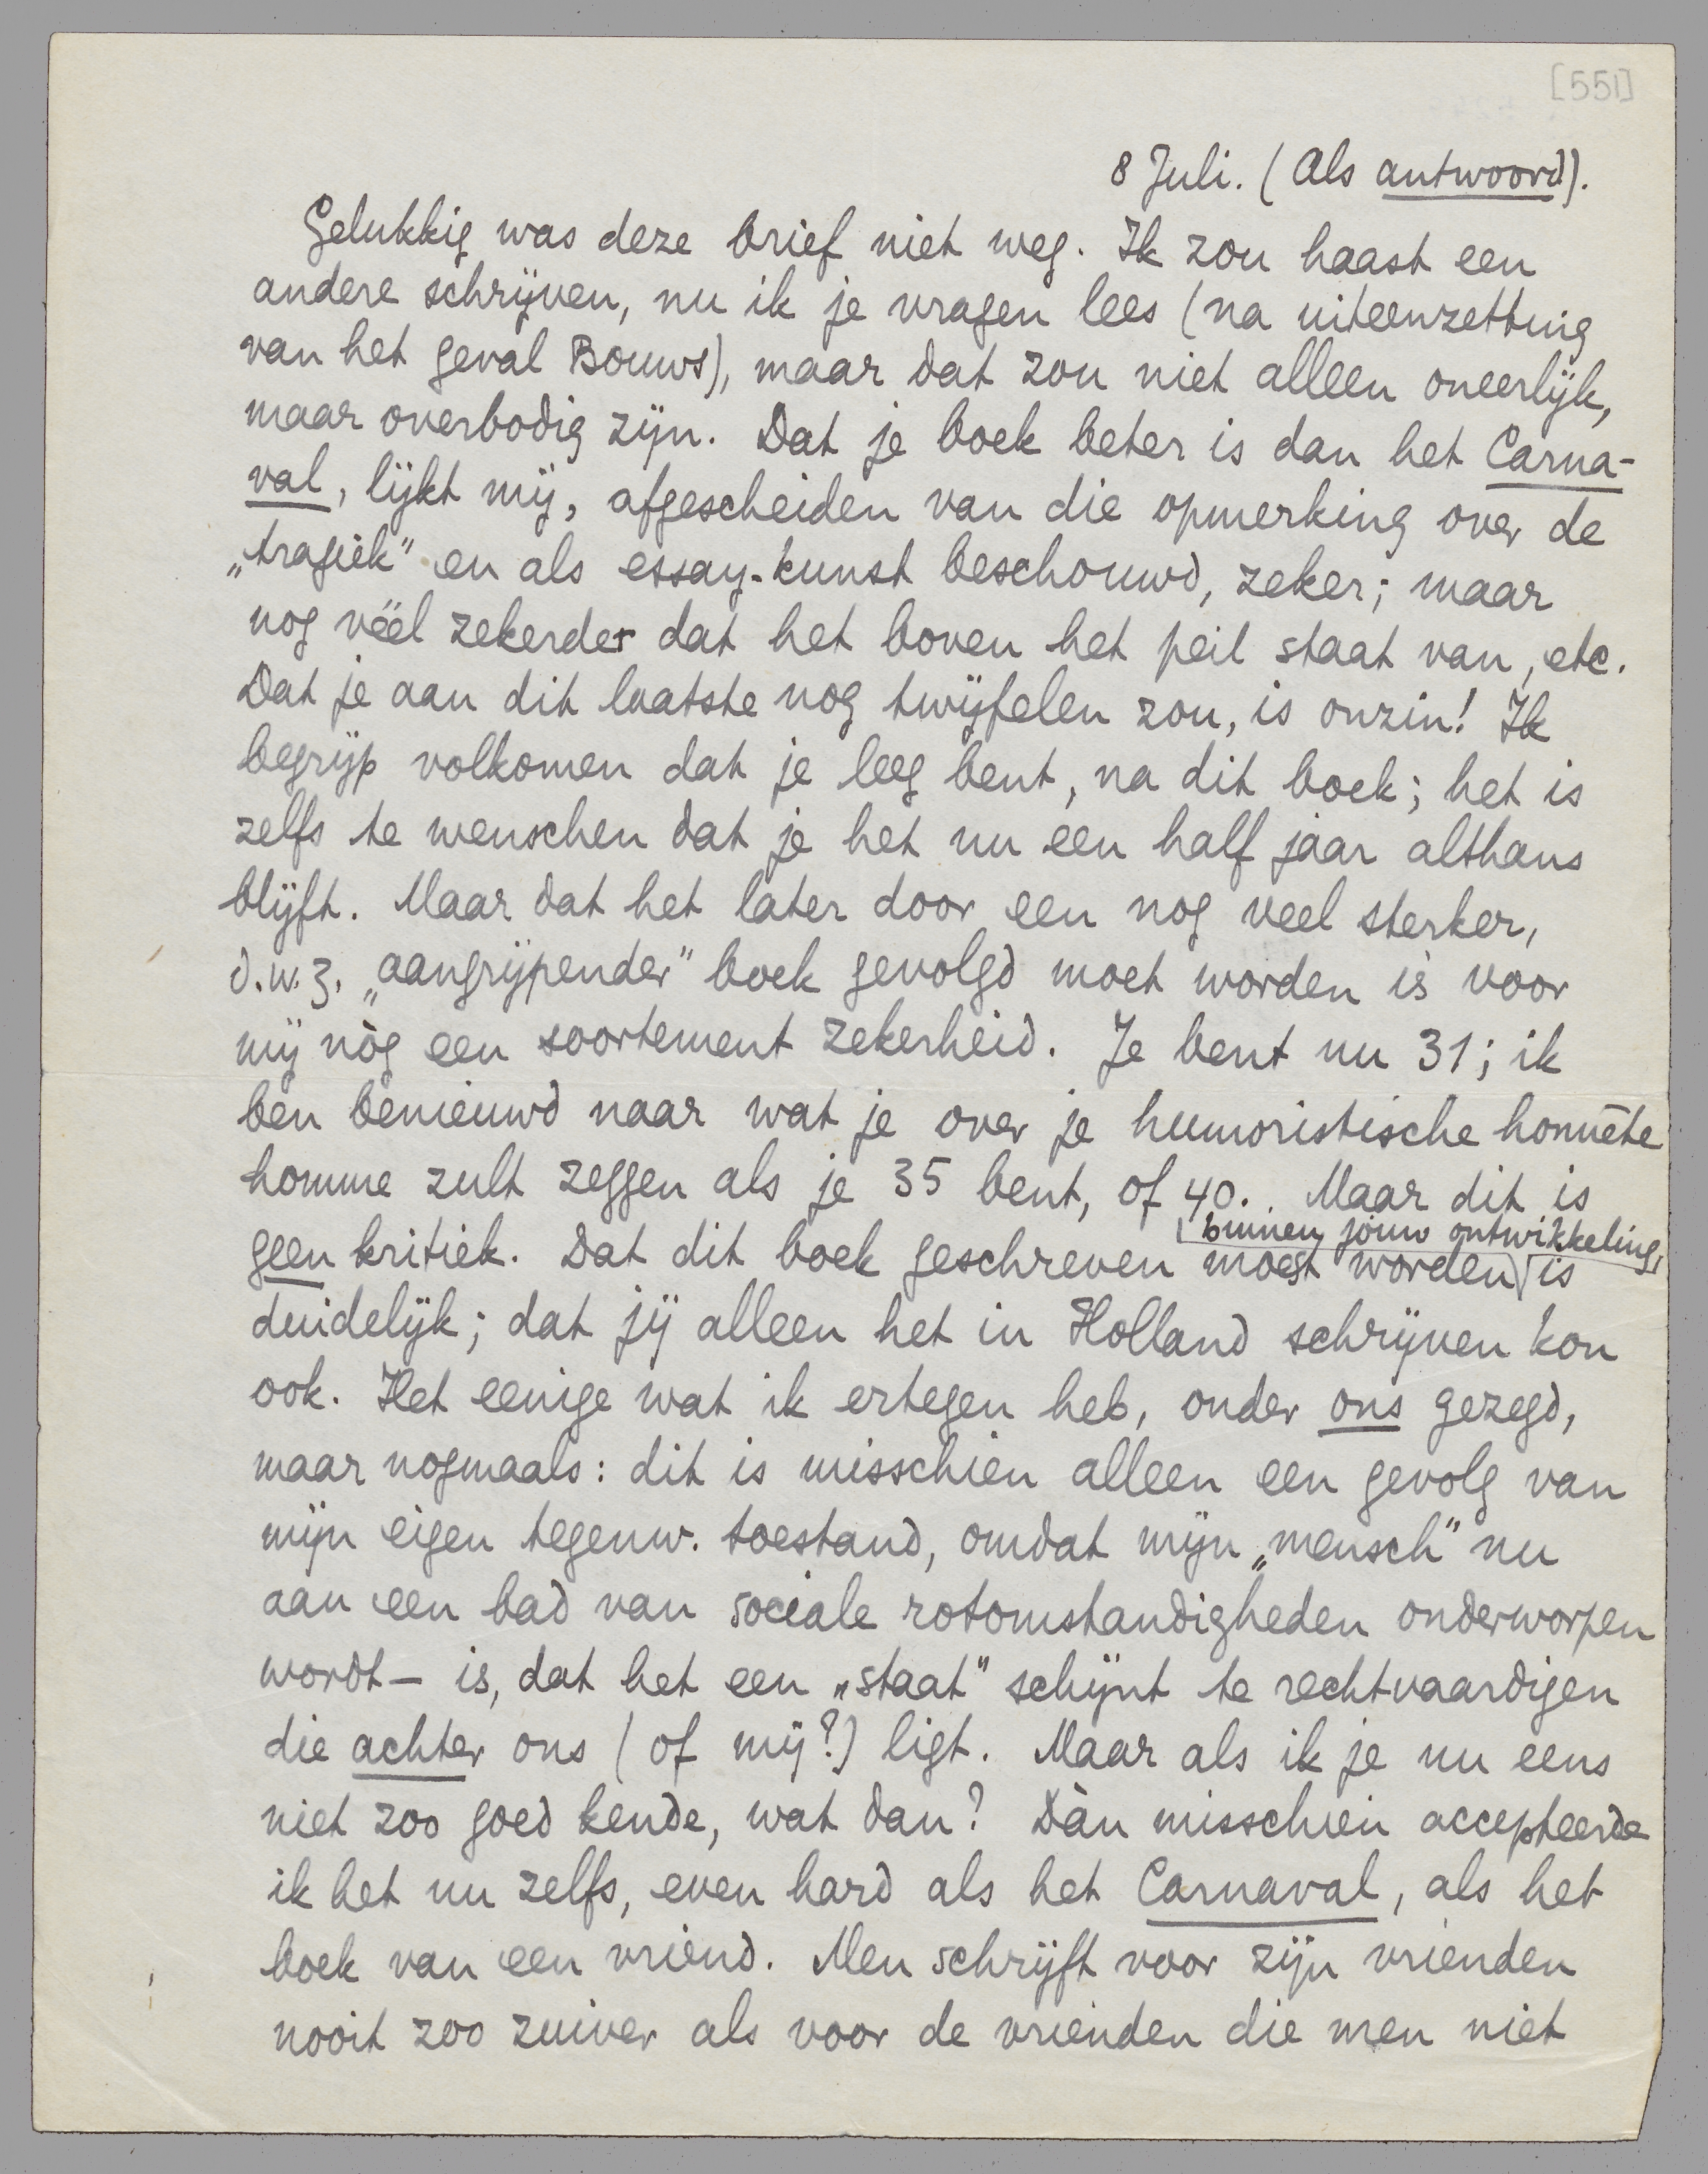 [551]
8 Juli. (Als antwoord).
Gelukkig was deze brief niet weg. Ik zou haast een
andere schrijven, nu ik je vragen lees (na uiteenzetting
van het geval Bouws), maar dat zou niet alleen oneerlijk,
maar overbodig zijn. Dat je boek beter is dan het Carna-
val, lijkt mij, afgescheiden van die opmerking over de
„tragiek" en als essay-kunst beschouwd, zeker; maar
nog véél zekerder dat het boven het peil staat van, etc.
Dat je aan dit laatste nog twijfelen zou, is onzin! Ik
begrijp volkomen dat je leeg bent, na dit boek; het is
zelfs te wenschen dat je het nu een half jaar althans
blijft. Maar dat het later door een nog veel sterker,
d.w.z. „aangrijpender" boek gevolgd moet worden is voor
mij nòg een soortement zekerheid. Je bent nu 31; ik
ben benieuwd naar wat je over je humoristische honnête
homme zult zeggen als je 35 bent, of 40. Maar dit is
geen kritiek. Dat dit boek geschreven moest worden binnen jouw ontwikkeling, is
duidelijk; dat jij alleen het in Holland schrijven kon
ook. Het eenige wat ik ertegen heb, onder ons gezegd,
maar nogmaals: dit is misschien alleen een gevolg van
mijn eigen tegenw. toestand, omdat mijn „mensch" nu
aan een bad van sociale rotomstandigheden onderworpen
wordt — is, dat het een „staat" schijnt te rechtvaardigen
die achter ons (of mij?) ligt. Maar als ik je nu eens
niet zoo goed kende, wat dan? Dàn misschien accepteerde
ik het nu zelfs, even hard als het Carnaval, als het
boek van een vriend. Men schrijft voor zijn vrienden
nooit zoo zuiver als voor de vrienden die men niet